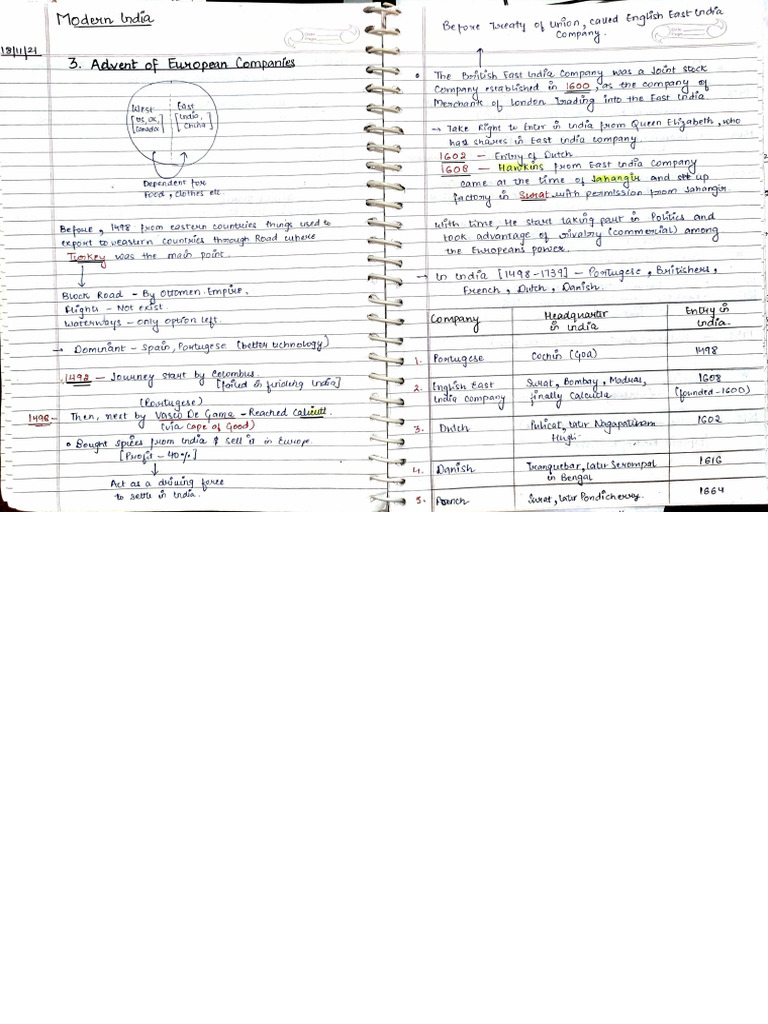 Modern India
18/11/21
3. Advent of European Companies
West East
[US, UK, Canada] [India, China]
Dependent for
Food, clothes etc.
Before, 1498 from eastern countries things used to
export to western countries through Road where
Turkey was the main point.
Block Road - By Ottomen Empire.
Flights - Not exist.
Waterways - only option left.
→ Dominant - Spain, Portugese (better technology)
1492 - Journey start by Colombus.
[failed in finding India]
(Portugese)
1498 - Then, next by Vasco De Gama - Reached Calicut.
(via Cape of Good)
• Bought spices from India & sell it in Europe.
[Profit - 40%]
Act as a driving force
to settle in India.
Before Treaty of Union, called English East India
Company.
• The British East India Company was a Joint stock
Company established in 1600, as the company of
Merchants of London Trading into the East India.
→ Take Right to Enter in India from Queen Elizabeth, who
has shares in East India company.
1602 - Entry of Dutch
1608 - Hawkins from East India Company
came at the time of Jahangir and set up
factory in Surat with permission from Jahangir.
With time, He start taking part in Politics and
took advantage of rivalry (commercial) among
the Europeans power.
→ In India [1498-1739] - Portugese, Britishers,
French, Dutch, Danish.
Company Headquarter in India Entry in India.
1. Portugese Cochin (Goa) 1498
2. English East India company Surat, Bombay, Madras, finally Calcutta 1608 (founded-1600)
3. Dutch Pulicat, later Nagapatinam Hugli 1602
4. Danish Tranquebar, later Serompal in Bengal 1616
5. French Surat, later Pondicherry. 1664